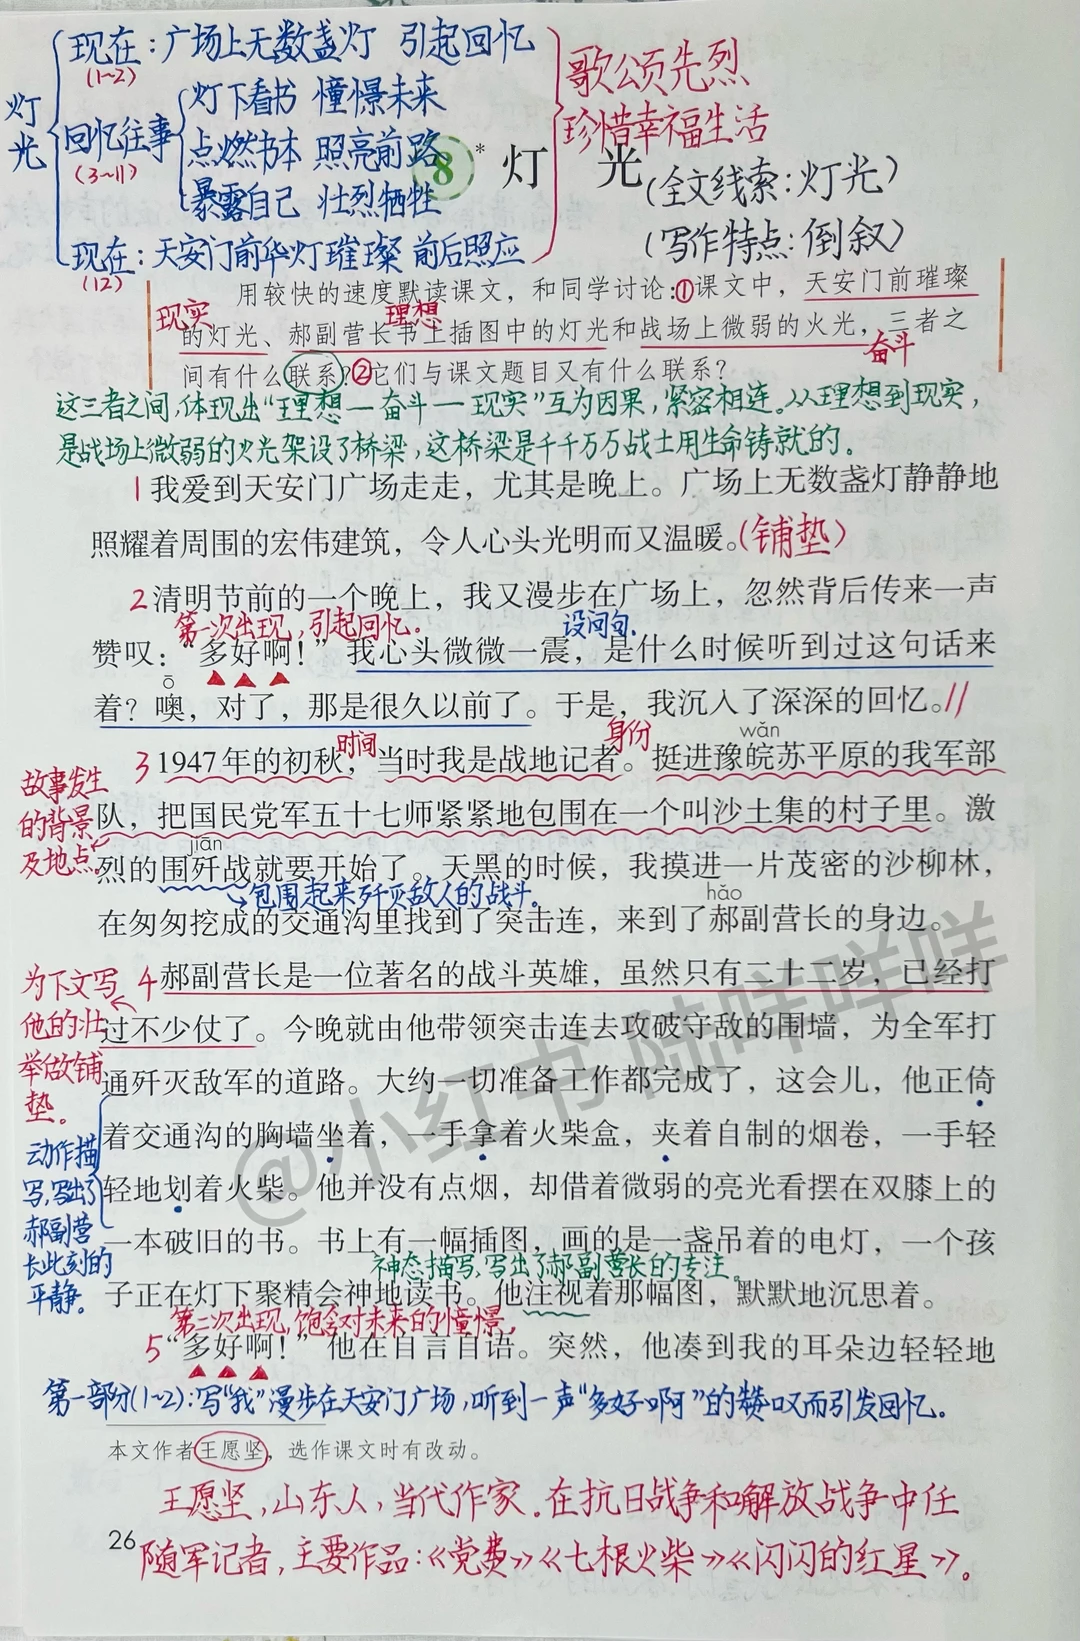 现在：广场上无数盏灯 引起回忆
(1~2)
灯光
灯下看书 憧憬未来
回忆往事
(3~11)
点燃书本 照亮前路
暴露自己 壮烈牺牲
现在：天安门前华灯璀璨 前后照应
(12)
歌颂先烈
珍惜幸福生活
8* 灯 光
(全文线索：灯光)
(写作特点：倒叙)
用较快的速度默读课文，和同学讨论：①课文中，天安门前璀璨
现实 理想
的灯光、郝副营长书上插图中的灯光和战场上微弱的火光，三者之
奋斗
间有什么联系？②它们与课文题目又有什么联系？
这三者之间，体现出“理想—奋斗—现实”互为因果，紧密相连。从理想到现实，
是战场上微弱的火光架设了桥梁，这桥梁是千千万万战士用生命铸就的。
1 我爱到天安门广场走走，尤其是晚上。广场上无数盏灯静静地
照耀着周围的宏伟建筑，令人心头光明而又温暖。(铺垫)
2 清明节前的一个晚上，我又漫步在广场上，忽然背后传来一声
第一次出现，引起回忆。 设问句。
赞叹：“多好啊！”我心头微微一震，是什么时候听到过这句话来
ō
着？噢，对了，那是很久以前了。于是，我沉入了深深的回忆。//
时间 身份 wǎn
3 1947年的初秋，当时我是战地记者。挺进豫皖苏平原的我军部
故事发生
的背景
及地点。
队，把国民党军五十七师紧紧地包围在一个叫沙土集的村子里。激
jiān
烈的围歼战就要开始了。天黑的时候，我摸进一片茂密的沙柳林，
包围起来歼灭敌人的战斗。 hǎo
在匆匆挖成的交通沟里找到了突击连，来到了郝副营长的身边。
为下文写
他的壮
举做铺
垫。
4 郝副营长是一位著名的战斗英雄，虽然只有二十二岁，已经打
过不少仗了。今晚就由他带领突击连去攻破守敌的围墙，为全军打
通歼灭敌军的道路。大约一切准备工作都完成了，这会儿，他正倚
动作描
写，写出了
郝副营
长此刻的
平静。
着交通沟的胸墙坐着，一手拿着火柴盒，夹着自制的烟卷，一手轻
轻地划着火柴。他并没有点烟，却借着微弱的亮光看摆在双膝上的
一本破旧的书。书上有一幅插图，画的是一盏吊着的电灯，一个孩
神态描写，写出了郝副营长的专注。
子正在灯下聚精会神地读书。他注视着那幅图，默默地沉思着。
第二次出现，饱含对未来的憧憬。
5 “多好啊！”他在自言自语。突然，他凑到我的耳朵边轻轻地
第一部分(1~2)：写“我”漫步在天安门广场，听到一声“多好啊”的赞叹而引发回忆。
本文作者王愿坚，选作课文时有改动。
王愿坚，山东人，当代作家。在抗日战争和解放战争中任
随军记者，主要作品：《党费》《七根火柴》《闪闪的红星》。
26
@小红书 陆咩咩咩